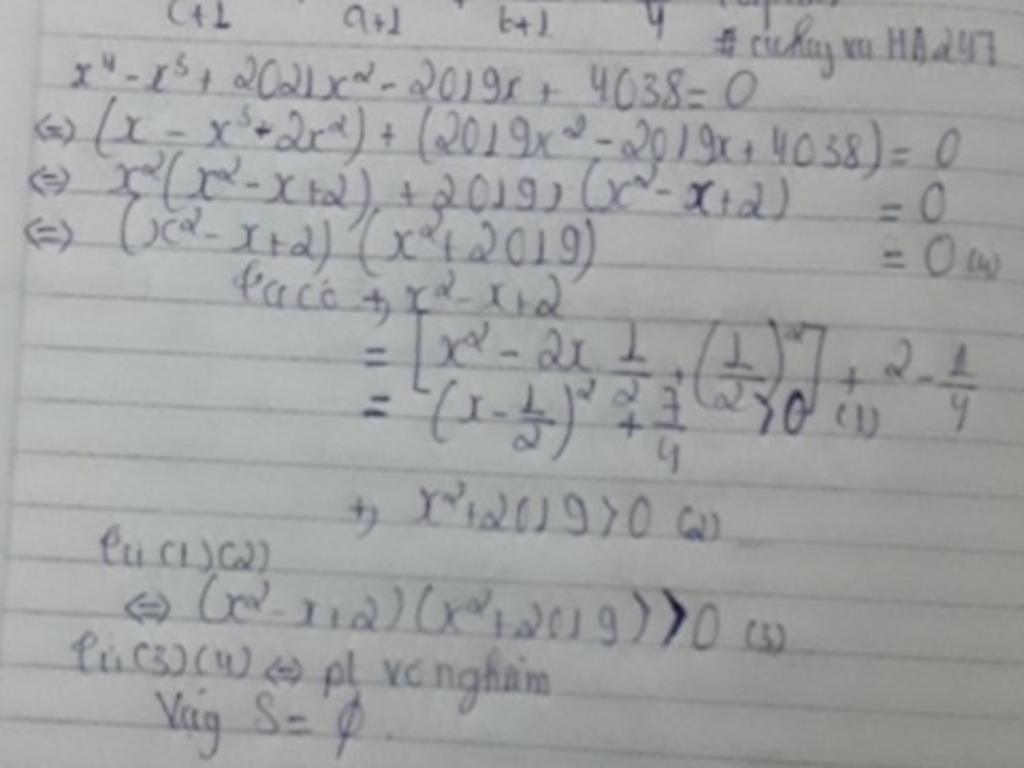 c+1 a+1 b+1 4
x⁴ - x³ + 2021x² - 2019x + 4038 = 0
⇔ (x - x³ + 2x²) + (2019x² - 2019x + 4038) = 0
⇔ x²(x² - x + 2) + 2019, (x² - x + 2) = 0
⇔ (x² - x + 2) (x² + 2019) = 0 (4)
Ta có +, x² - x + 2
= [x² - 2x 1/2 + (1/2)²] + 2 - 1/4
= (x - 1/2)² + 7/4 > 0 (1)
+, x² + 2019 > 0 (2)
Từ (1) (2)
⇔ (x² - x + 2) (x² + 2019) > 0 (3)
Từ (3) (4) ⇔ pt vô nghiệm
Vậy S = ∅.